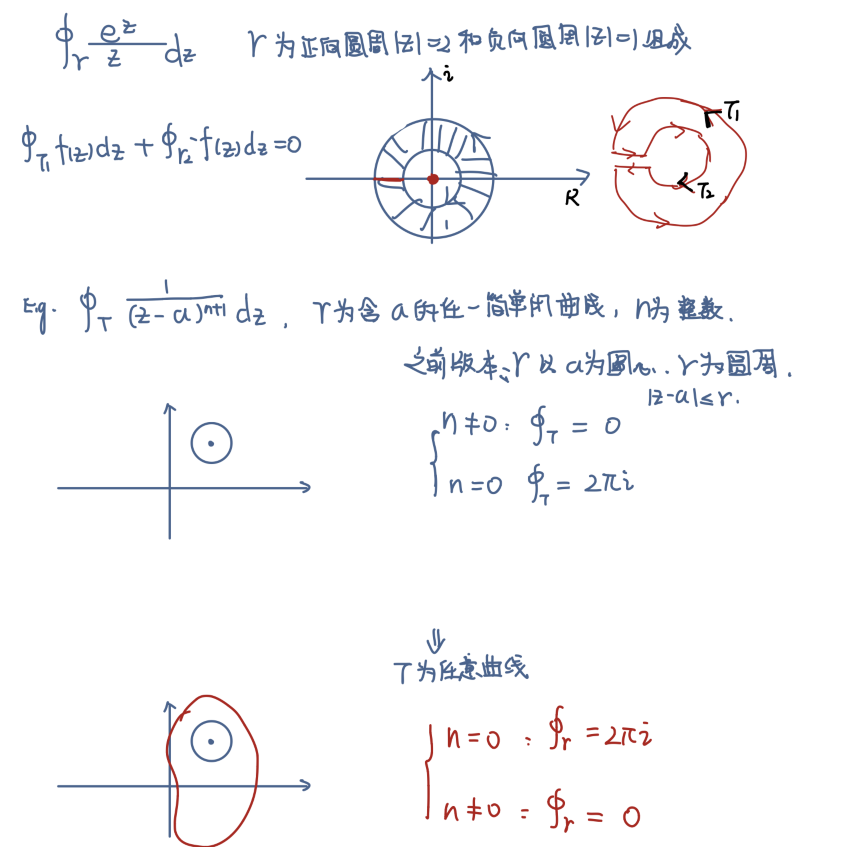 ∮_Γ e^z/z dz Γ为正向圆周|z|=2和负向圆周|z|=1组成
i
∮_Γ₁ f(z)dz + ∮_Γ₂⁻ f(z)dz=0
Γ₁
Γ₂
R
E.g. ∮_Γ 1/(z-a)^{n+1} dz, Γ为含a的任一简单闭曲线, n为整数.
之前版本: Γ以a为圆心, r为圆周.
|z-a|≤r.
n≠0: ∮_Γ = 0
n=0 ∮_Γ = 2πi
⇓
Γ为任意曲线
n=0 : ∮_Γ =2πi
n≠0 : ∮_Γ = 0